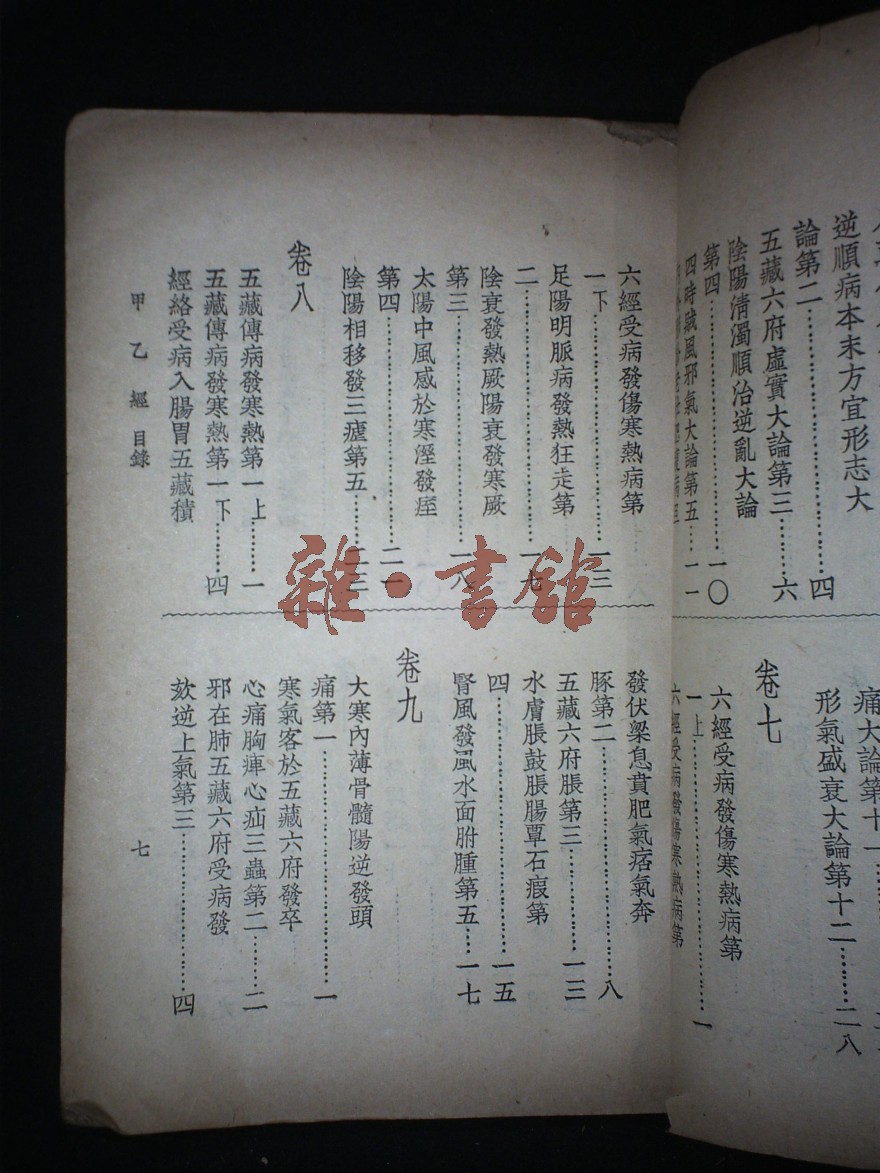 逆順病本末方宜形志大
論第二……四
五藏六府虛實大論第三……六
陰陽清濁順治逆亂大論
第四……一〇
四時賊風邪氣大論第五……一一
痛大論第十一……
形氣盛衰大論第十二……二八
卷七
六經受病發傷寒熱病第
一上……一
六經受病發傷寒熱病第
六經受病發傷寒熱病第
一下……一三
足陽明脈病發熱狂走第
二……一七
陰衰發熱厥陽衰發寒厥
第三……一八
太陽中風感於寒溼發痙
第四……二一
陰陽相移發三瘧第五……二三
卷八
五藏傳病發寒熱第一上……一
五藏傳病發寒熱第一下……四
經絡受病入腸胃五藏積
發伏梁息賁肥氣痞氣奔
豚第二……八
五藏六府脹第三……一三
水膚脹鼓脹腸覃石瘕第
四……一五
腎風發風水面胕腫第五……一七
卷九
大寒內薄骨髓陽逆發頭
痛第一……一
寒氣客於五藏六府發卒
心痛胸痺心疝三蟲第二……二
邪在肺五藏六府受病發
欬逆上氣第三……四
甲乙經 目錄
七
雜·書館